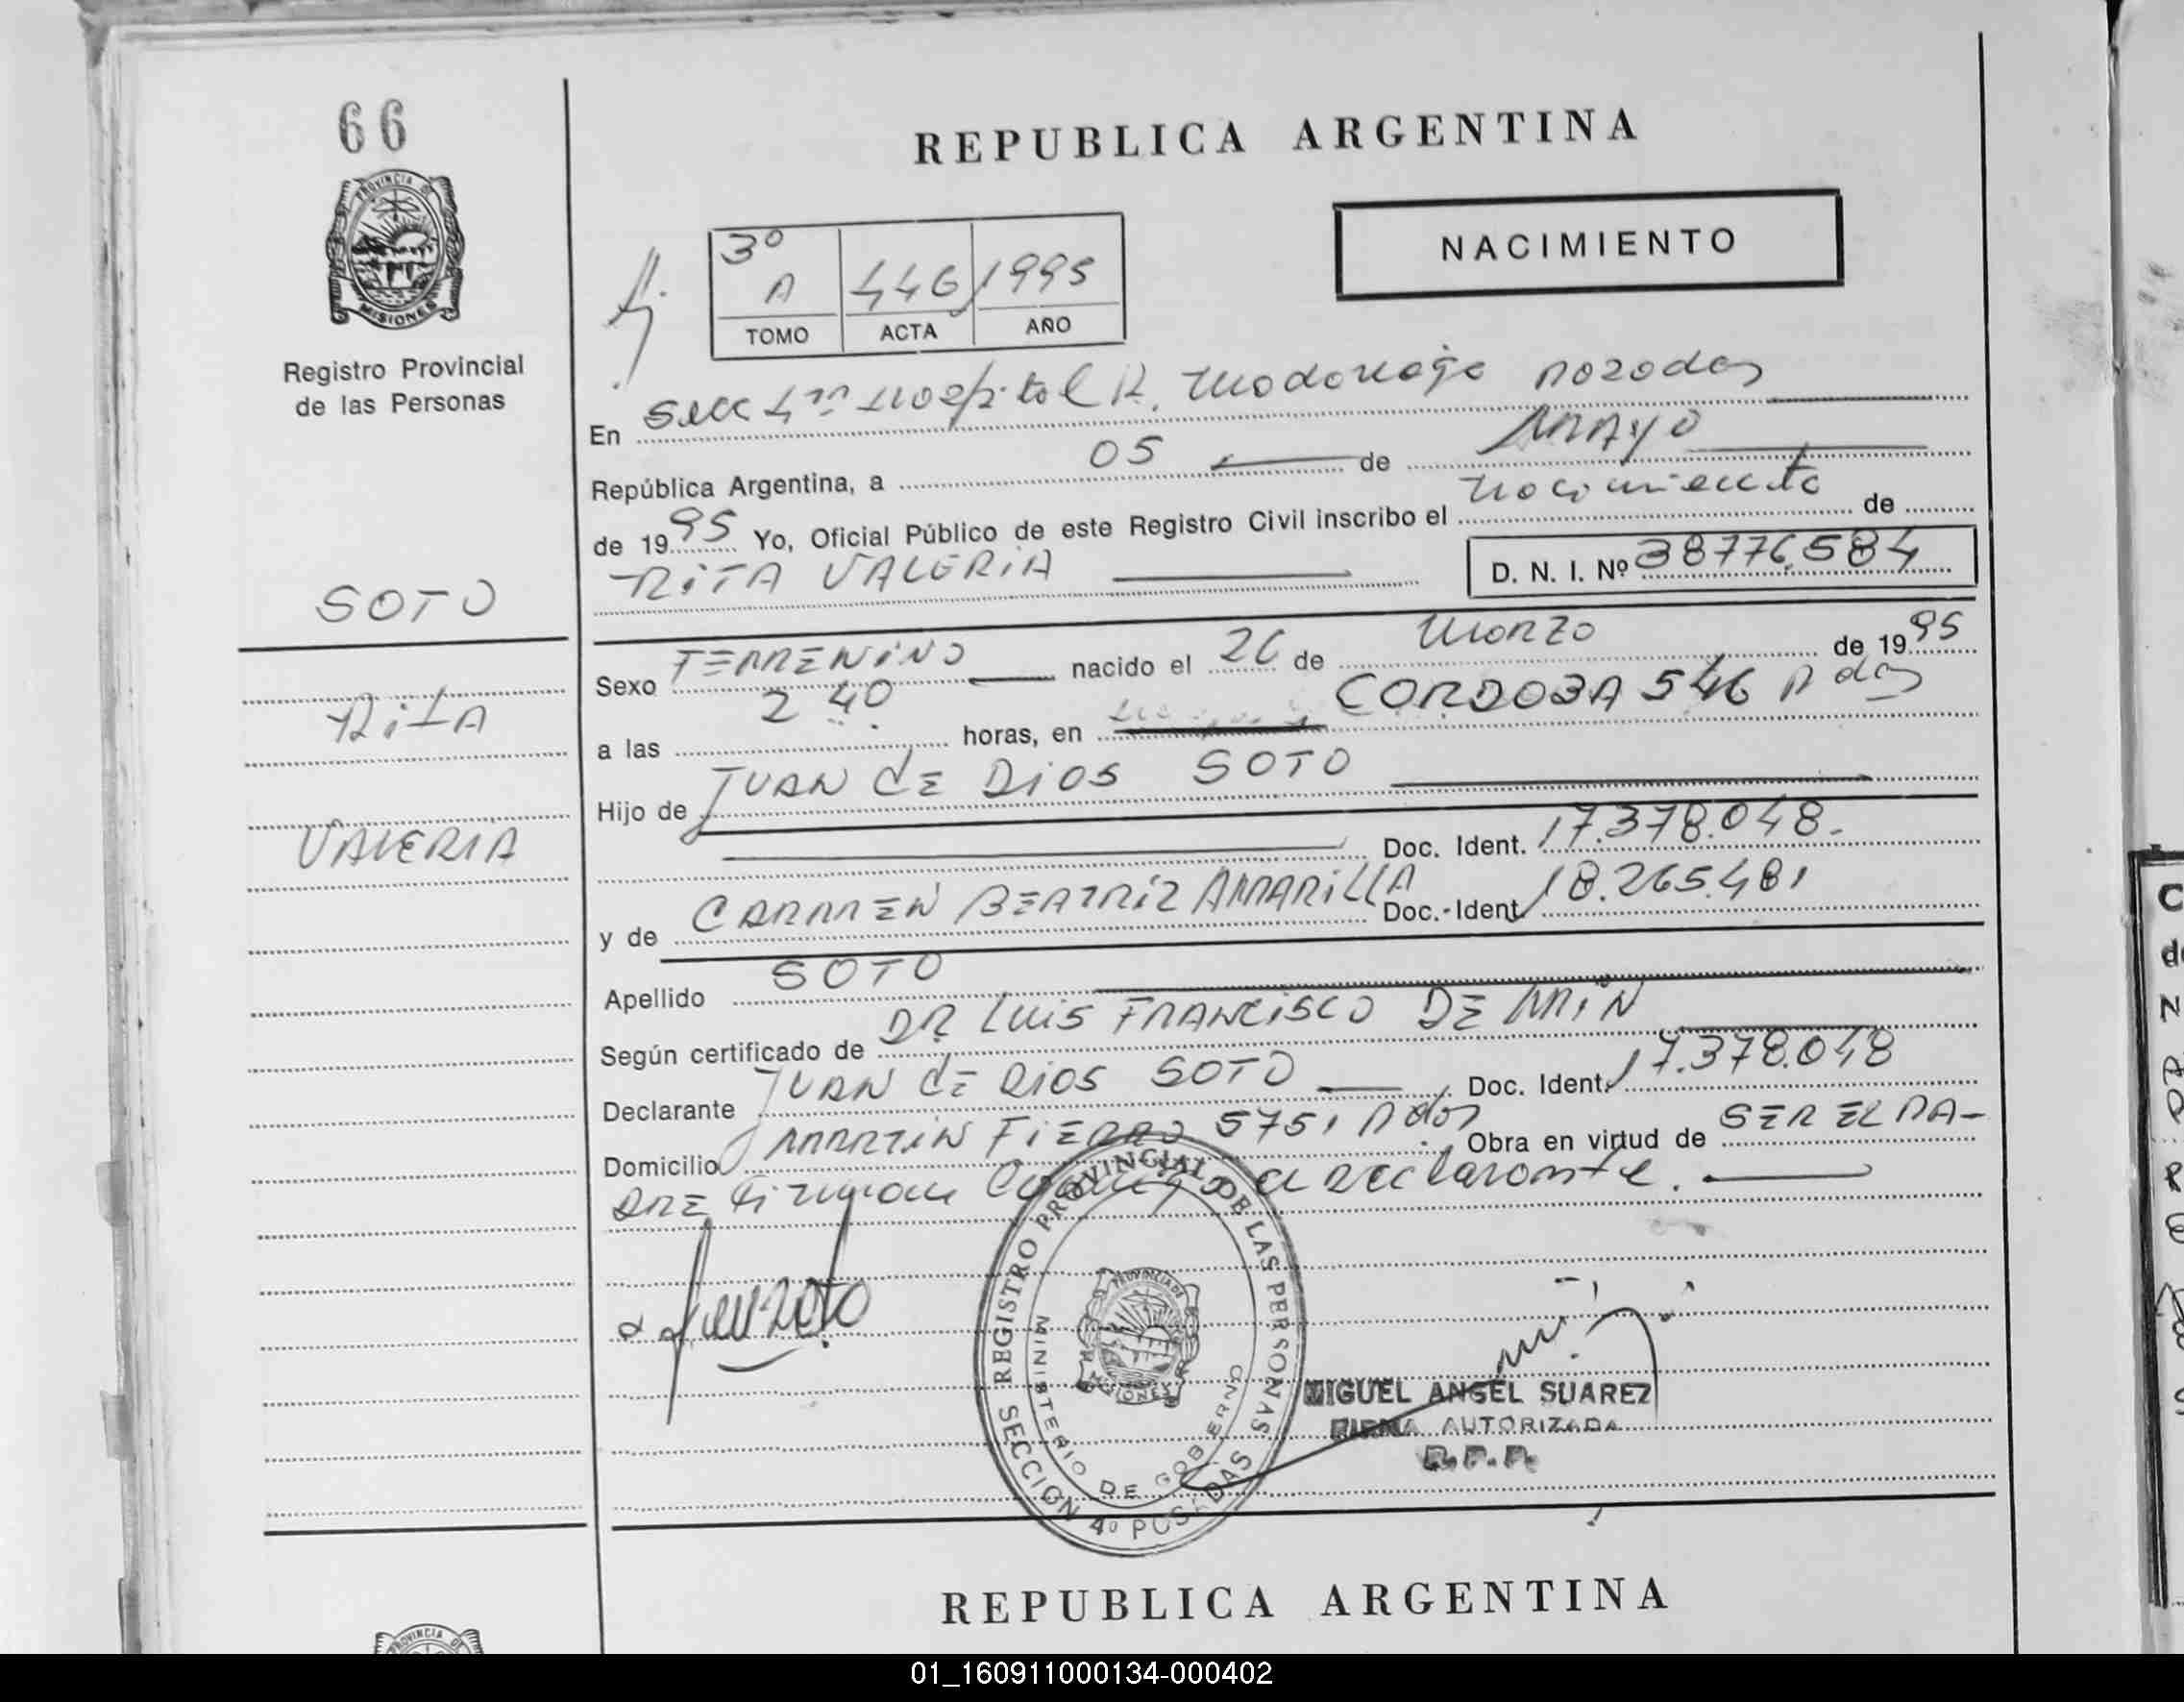 66
PROVINCIA DE
MISIONES
Registro Provincial
de las Personas
SOTO
RitA
VALERIA
REPUBLICA ARGENTINA
NACIMIENTO
3º
A 446 1995
TOMO ACTA AÑO
En Secc 4ta Hospital R. Madariaga Posadas
República Argentina, a 05 de MAYO
de 1995 Yo, Oficial Público de este Registro Civil inscribo el nacimiento de
RITA VALERIA D. N. I. Nº 38776584
Sexo FEMENINO nacido el 26 de Marzo de 1995
a las 2 40 horas, en CORDOBA 546 Pdas
Hijo de JUAN dE DIOS SOTO
Doc. Ident. 17.378.048.
y de CARMEN BEATRIZ AMARILLA Doc.-Ident 18.265.481
Apellido SOTO
Según certificado de DR LUIS FRANCISCO DE MIN
Declarante JUAN dE DIOS SOTO Doc. Ident. 17.378.048
Domicilio MARTIN FIERRO 5751 Pdas Obra en virtud de SER EL PA-
DRE firman el declarante.
Juan Soto
REGISTRO PROVINCIAL DE LAS PERSONAS
MINISTERIO DE GOBIERNO
SECCION 4º POSADAS
PROVINCIA DE
MISIONES
MIGUEL ANGEL SUAREZ
FIRMA AUTORIZADA
R.P.P.
REPUBLICA ARGENTINA
PROVINCIA DE
01_160911000134-000402